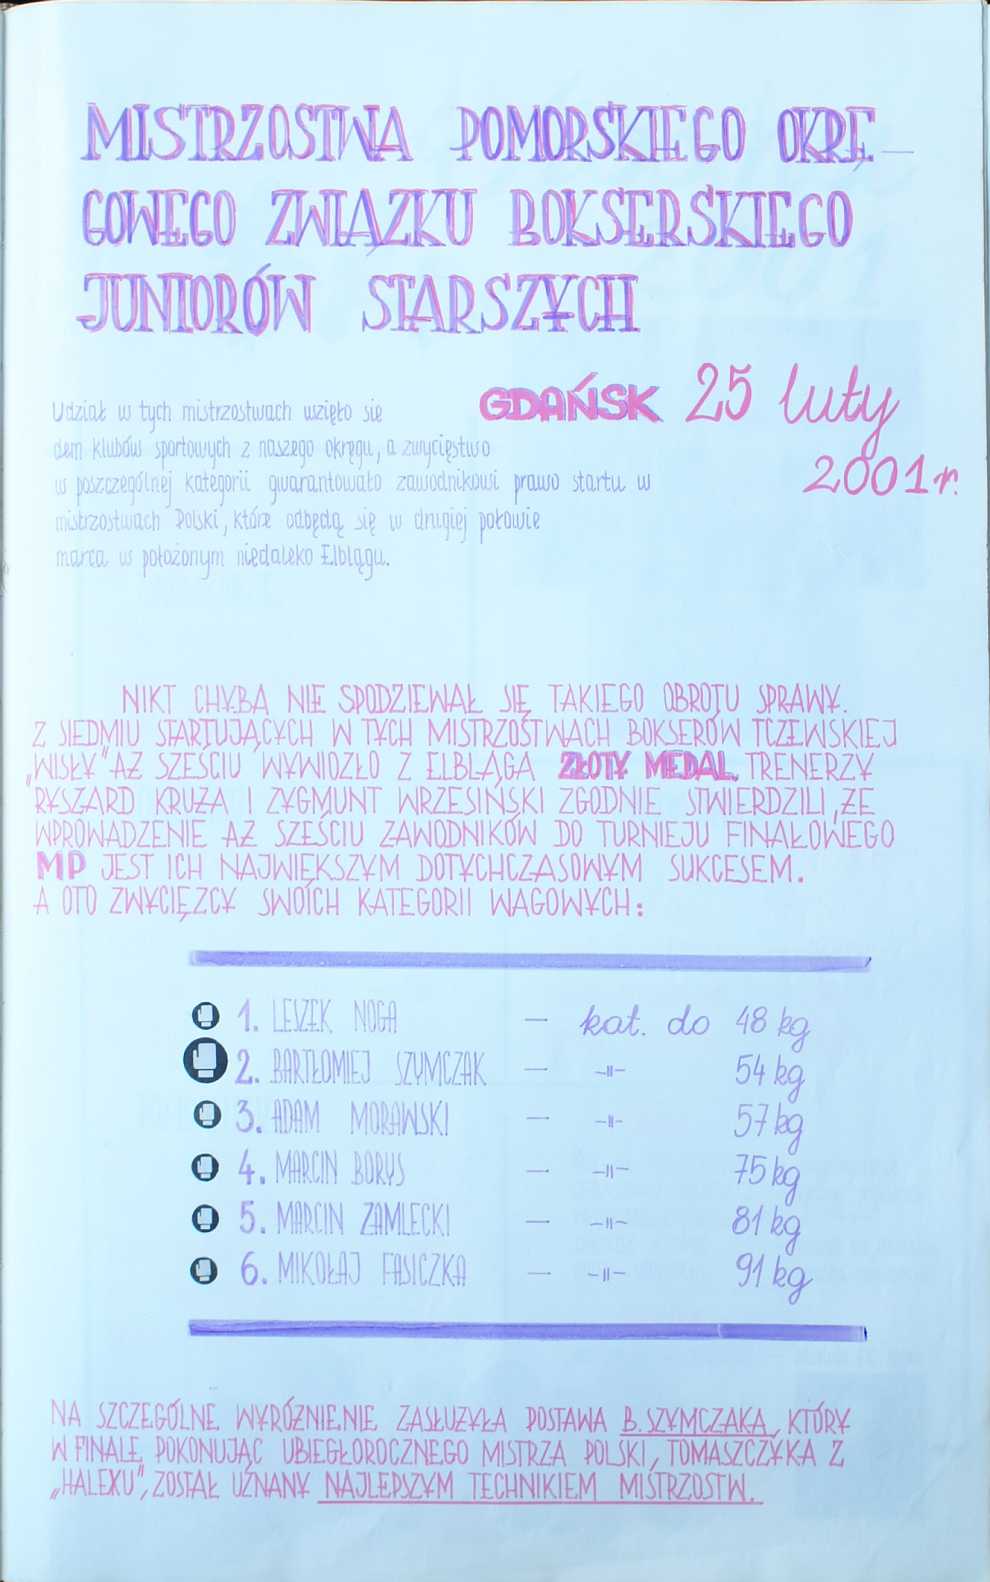 MISTRZOSTWA POMORSKIEGO OKRĘ-
GOWEGO ZWIĄZKU BOKSERSKIEGO
JUNIORÓW STARSZYCH
GDAŃSK 25 luty
2001 r.
Udział w tych mistrzostwach wzięło sie
dem klubów sportowych z naszego okręgu, a zwycięstwo
w poszczególnej kategorii gwarantowało zawodnikowi prawo startu w
mistrzostwach Polski, które odbędą się w drugiej połowie
marca w położonym niedaleko Elblągu.
NIKT CHYBA NIE SPODZIEWAŁ SIĘ TAKIEGO OBROTU SPRAWY.
Z SIEDMIU STARTUJĄCYCH W TYCH MISTRZOSTWACH BOKSERÓW TCZEWSKIEJ
„WISŁY" AŻ SZEŚCIU WYWIOZŁO Z ELBLĄGA ZŁOTY MEDAL. TRENERZY
RYSZARD KRUŻA I ZYGMUNT WRZESIŃSKI ZGODNIE STWIERDZILI, ŻE
WPROWADZENIE AŻ SZEŚCIU ZAWODNIKÓW DO TURNIEJU FINAŁOWEGO
MP JEST ICH NAJWIĘKSZYM DOTYCHCZASOWYM SUKCESEM.
A OTO ZWYCIĘZCY SWOICH KATEGORII WAGOWYCH:
1. LESZEK NOGA — kat. do 48 kg
2. BARTŁOMIEJ SZYMCZAK — -||- 54 kg
3. ADAM MORAWSKI — -||- 57 kg
4. MARCIN BORYS — -||- 75 kg
5. MARCIN ZAMLECKI — -||- 81 kg
6. MIKOŁAJ FASICZKA — -||- 91 kg
NA SZCZEGÓLNE WYRÓŻNIENIE ZASŁUŻYŁA POSTAWA B. SZYMCZAKA, KTÓRY
W FINALE POKONUJĄC UBIEGŁOROCZNEGO MISTRZA POLSKI, TOMASZCZYKA Z
„HALEXU", ZOSTAŁ UZNANY NAJLEPSZYM TECHNIKIEM MISTRZOSTW.